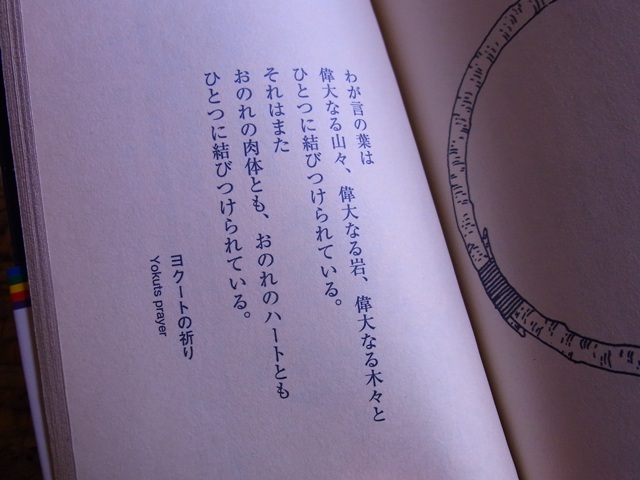 わが言の葉は
偉大なる山々、偉大なる岩、偉大なる木々と
ひとつに結びつけられている。
それはまた
おのれの肉体とも、おのれのハートとも
ひとつに結びつけられている。
ヨクートの祈り
Yokuts prayer